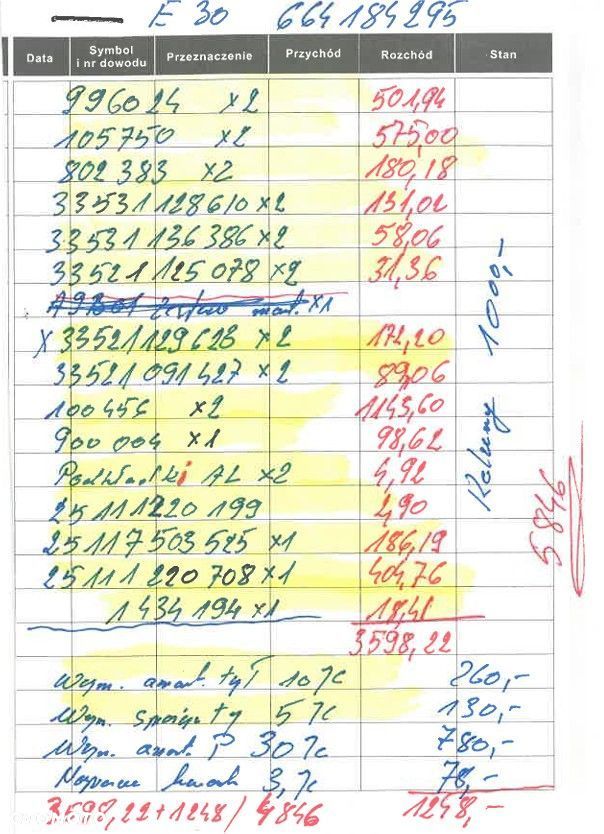 E 30 664184295
Data Symbol i nr dowodu Przeznaczenie Przychód Rozchód Stan
996024 x2 501,94
105750 x2 575,00
802383 x2 180,18
33531128610 x2 131,02
33531136386 x2 58,06
33521125078 x2 31,36
x1
X 33521129628 x2 172,20
33521091427 x2 89,06
100456 x2 1143,60
900004 x1 98,62
Podkładki AL x2 4,92
25111220199 4,90
25117503525 x1 186,19
25111220708 x1 404,76
1434194 x1 18,41
3598,22
Wym. amort. tył 10 260,-
Wym. sprzęgła 5 130,-
Wym. amort. P 30 780,-
Naprawa 3, 78,-
3598,22+1248/ 4846 1248,-
1000,-
5846